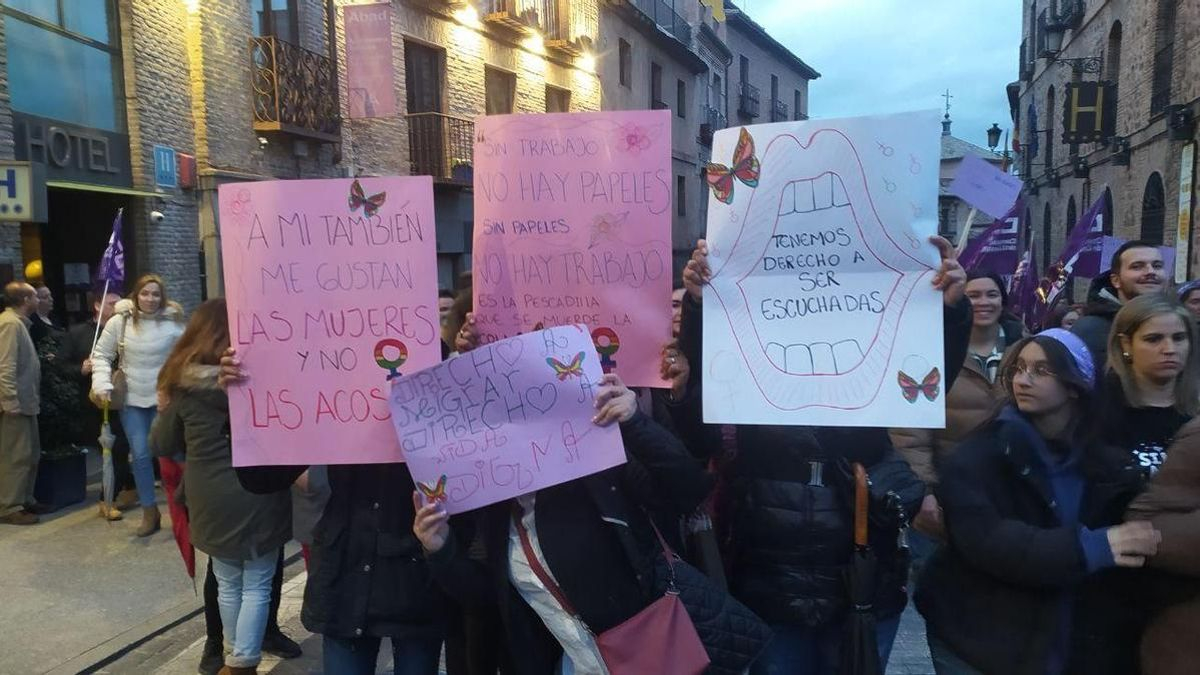 Abad
HOTEL
H
H
H
A MI TAMBIÉN
ME GUSTAN
LAS MUJERES
Y NO
LAS ACOS
"SIN TRABAJO
NO HAY PAPELES
SIN PAPELES
NO HAY TRABAJO
ES LA PESCADILLA
QUE SE MUERDE LA
TENEMOS
DERECHO A
SER
ESCUCHADAS
DERECHO
VIDA